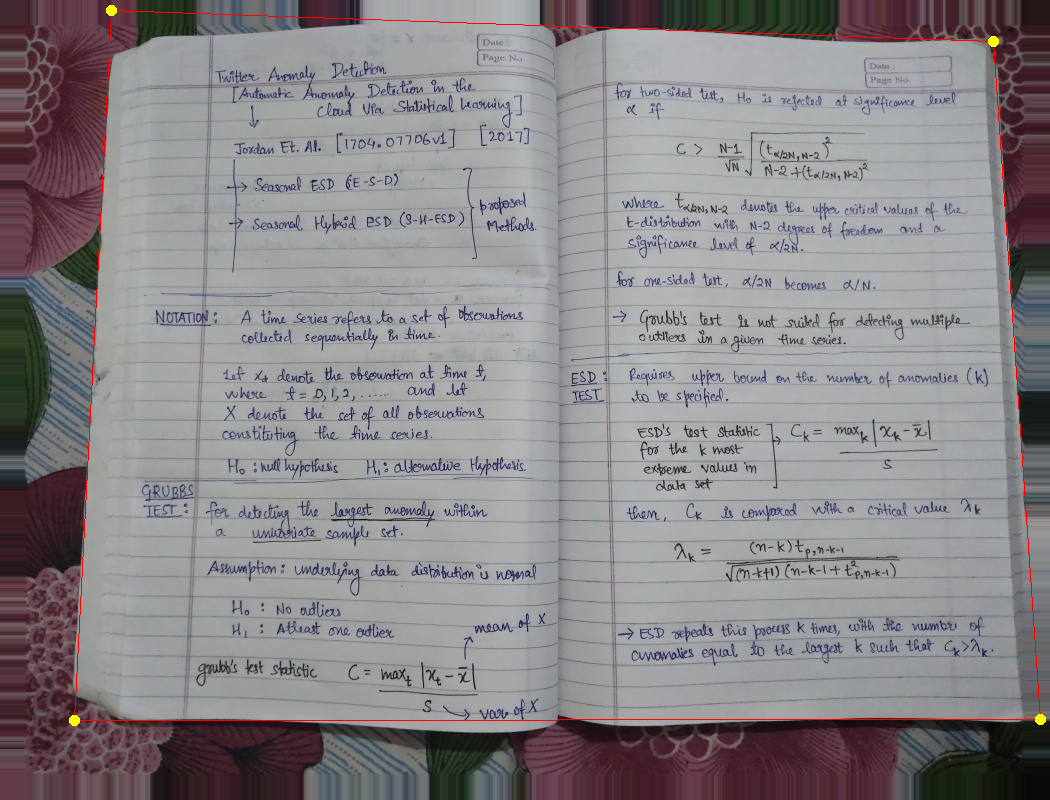 Date
Page No.
Twitter Anomaly Detection
[Automatic Anomaly Detection in the
Cloud Via Statistical Learning]
↓
Jordan Et. Al. [1704.07706v1] [2017]
→ Seasonal ESD (E-S-D)
→ Seasonal Hybrid ESD (S-H-ESD)
proposed
Methods.
NOTATION: A time series refers to a set of observations
collected sequentially in time.
Let xt denote the observation at time t,
where t = 0,1,2, ...... and let
X denote the set of all observations
constituting the time series.
H₀ : null hypothesis H₁ : alternative Hypothesis.
GRUBBS
TEST: for detecting the largest anomaly within
a univariate sample set.
Assumption: underlying data distribution is normal
H₀ : No outliers
H₁ : Atleast one outlier
mean of X
grubb's test statistic C = maxt |xt - x̄|
S → var of X
Date :
Page No.
for two-sided test, H₀ is rejected at significance level
α if
C > N-1/√N √((tα/2N, N-2)² / N-2+(tα/2N, N-2)²)
where tα/2N, N-2 denotes the upper critical values of the
t-distribution with N-2 degrees of freedom and a
significance level of α/2N.
for one-sided test, α/2N becomes α/N.
→ Grubb's test is not suited for detecting multiple
outliers in a given time series.
ESD : Requires upper bound on the number of anomalies (k)
TEST to be specified.
ESD's test statistic
for the k most
extreme values in
data set
Ck = maxk |xk - x̄|
S
then, Ck is compared with a critical value λk
λk = (n-k) tp,n-k-1
√(n-k+1) (n-k-1 + t²p,n-k-1)
→ ESD repeats this process k times, with the number of
anomalies equal to the largest k such that Ck>λk.